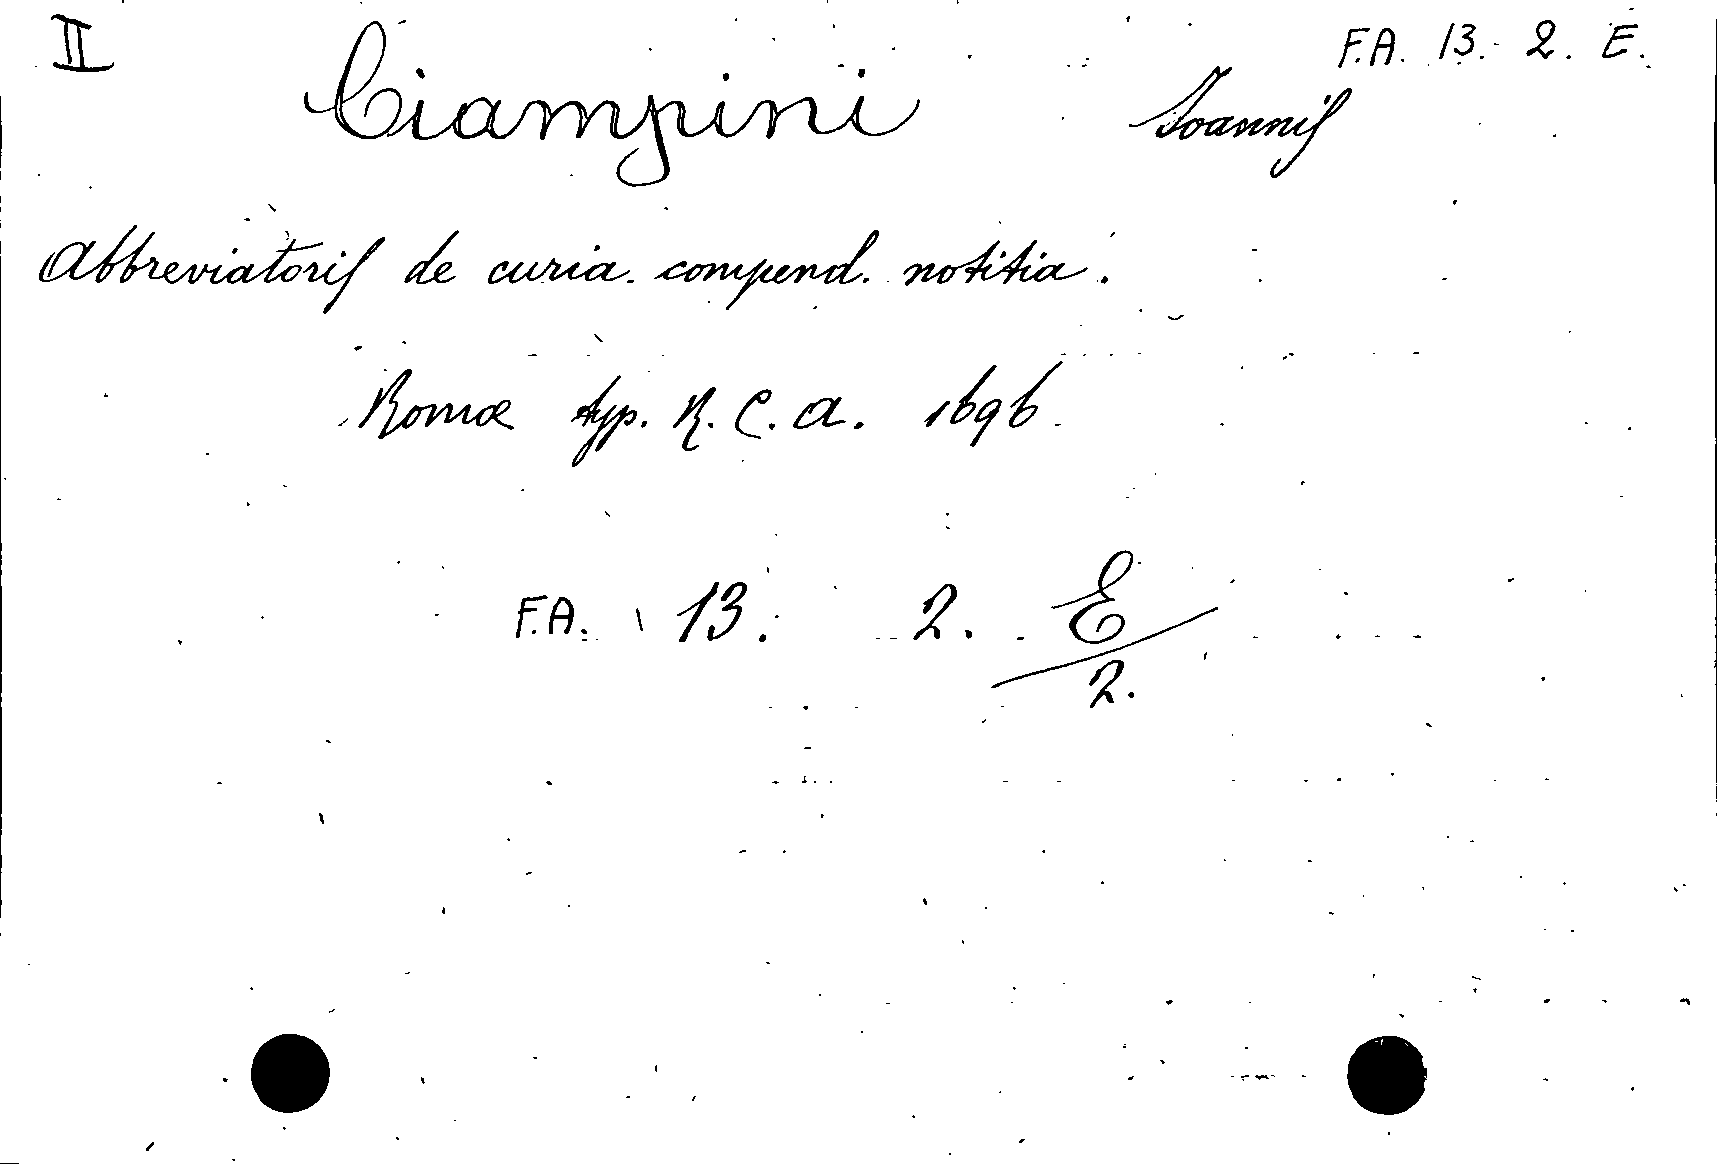 II Ciampini Joannis F.A. 13. 2. E.
Abbreviatoris de curia compend. notitia.
Romæ typ. R. C. A. 1696
F.A. 13. 2. E
2.